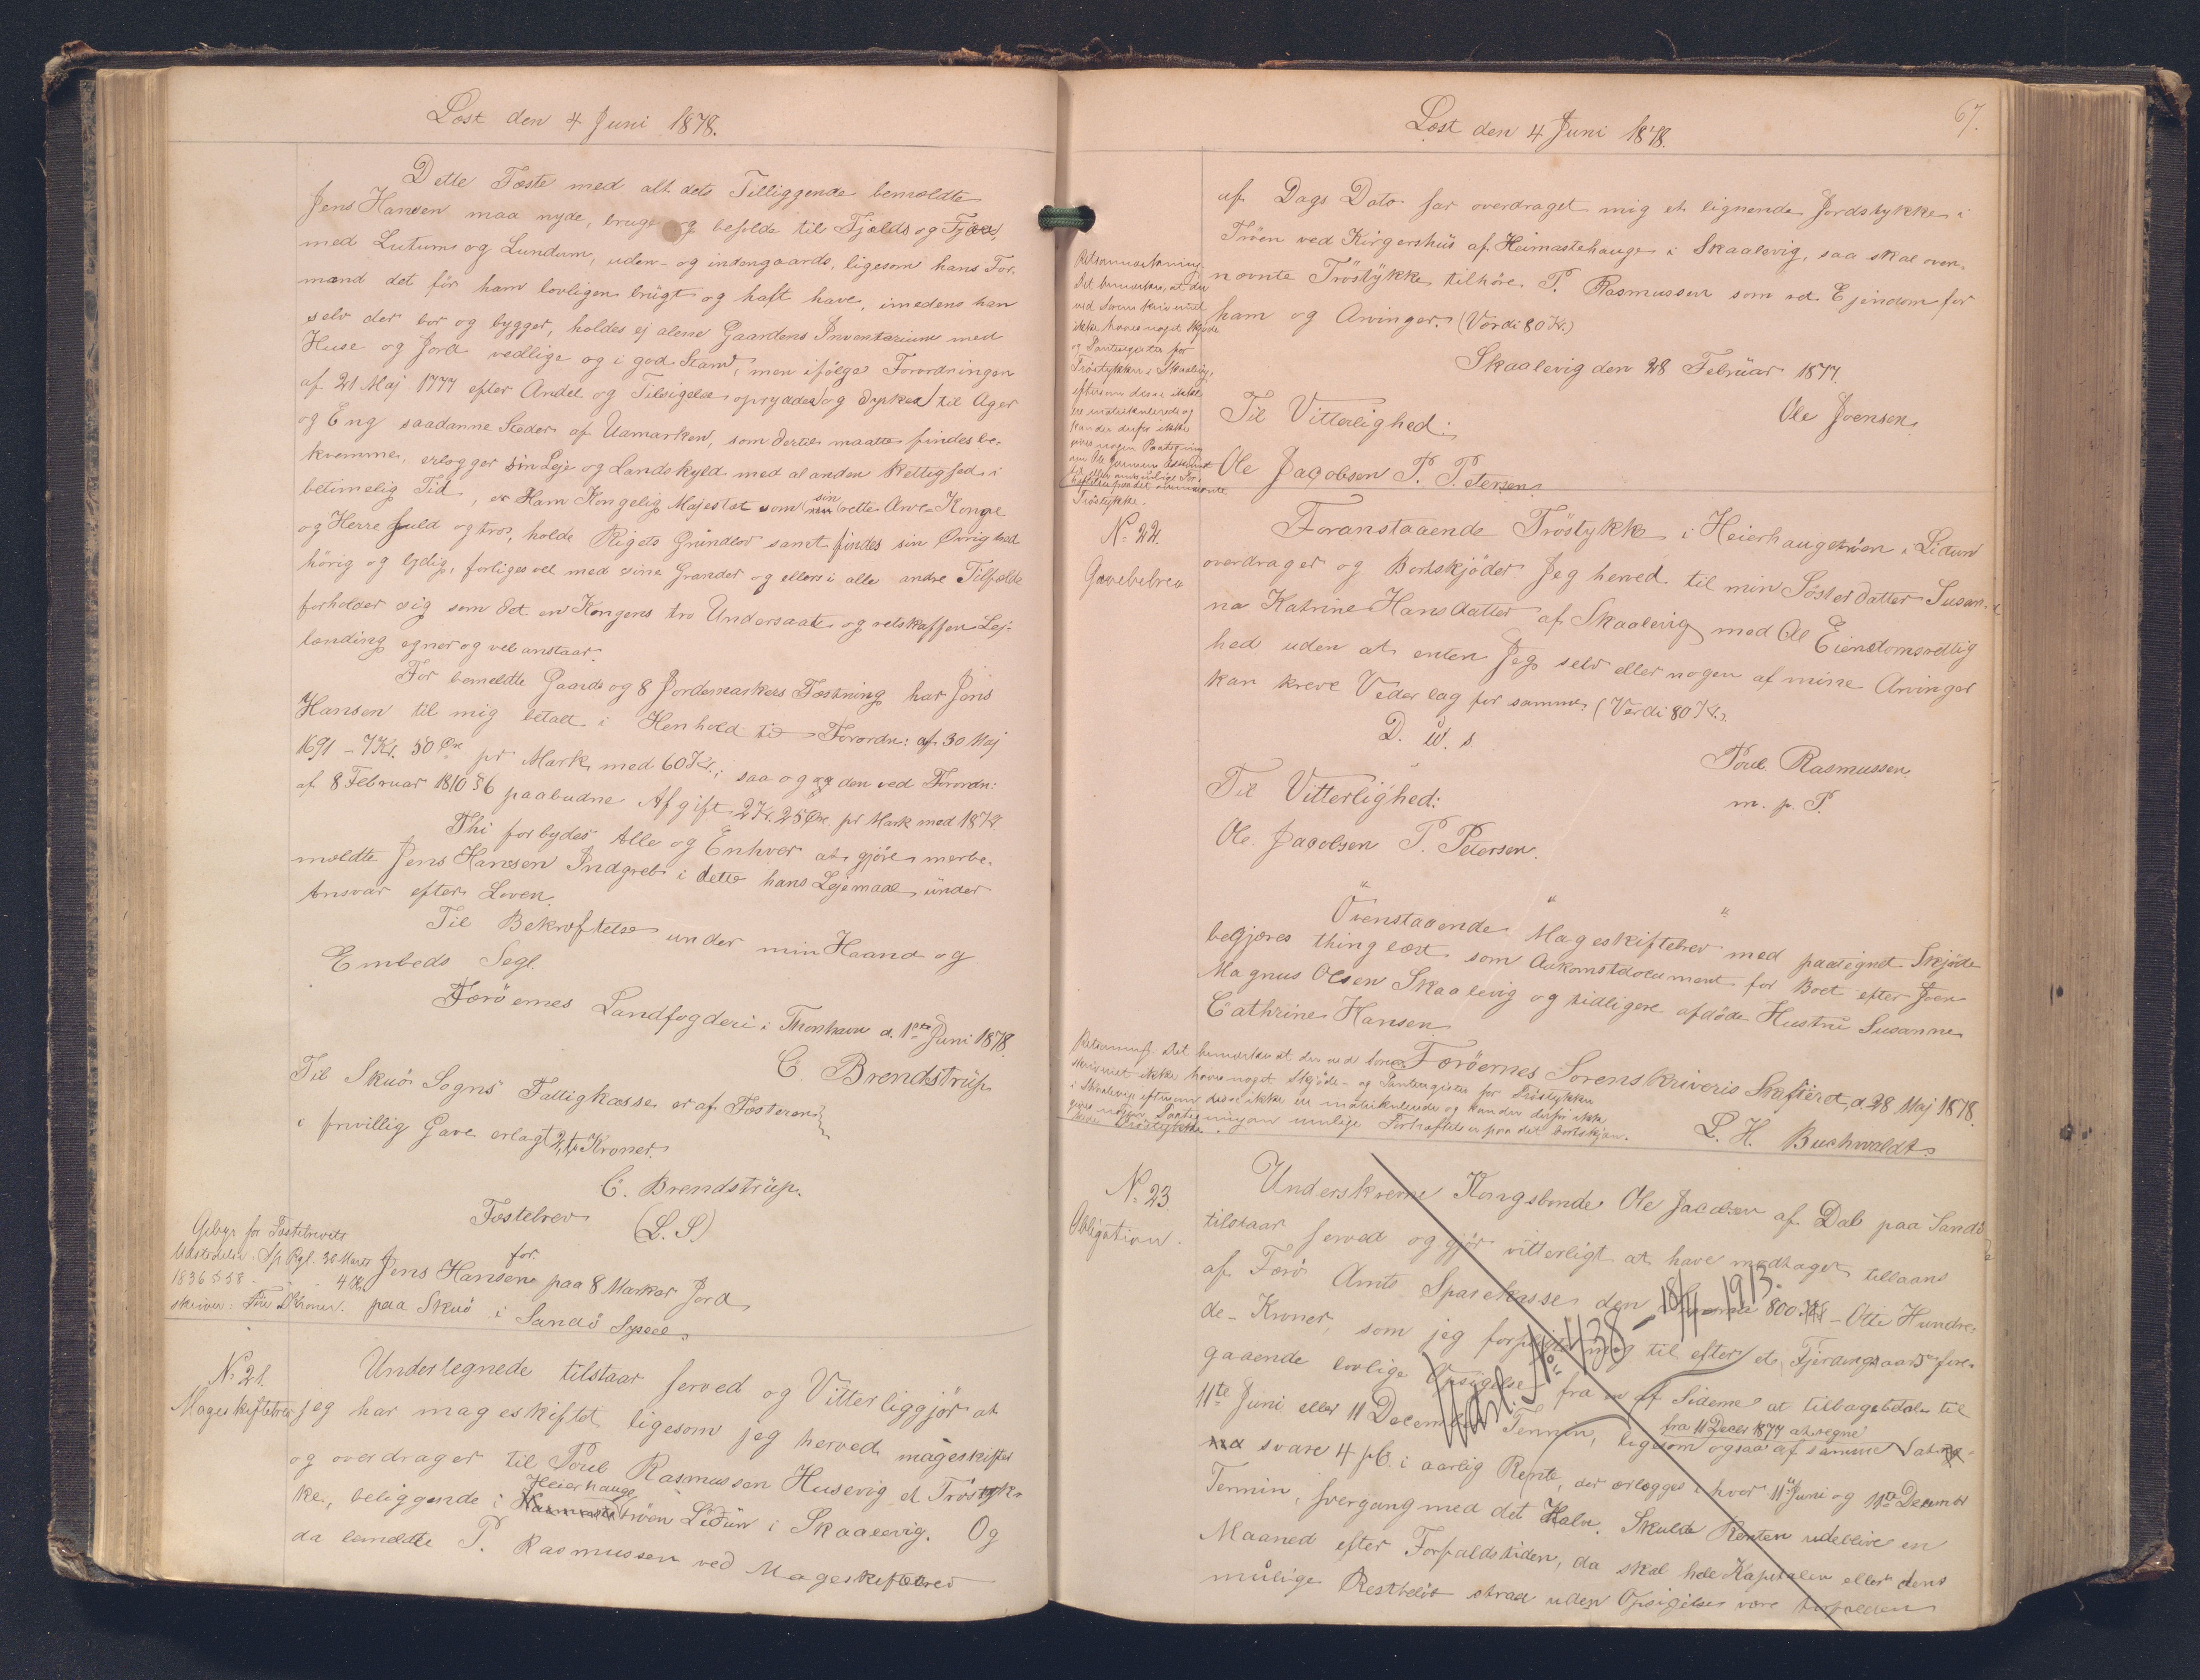 Læst den 4 Juni 1878.
Dette Fæste med alt dets Tilliggende bemældte
Jens Hansen maa nyde, bruge og beholde til Fjelds og Fjære,
med Lutum og Lundum, uden- og indengaards, ligesom hans For-
mand det før ham lovligen brugt og haft have, imedens han
selv der bor og bygger, holdes ej alene Gaardens Inventarium med
Huse og Jord vedlige og i god Stand, men ifølge Forordningen
af 21 Maj 1777 efter Andel og Tilsigelse opryddes og dyrkes til Ager
og Eng saadanne Steder af Udmarken, som dertil maatte findes be-
kvemme, erlægger sin Leje og Landskyld med al anden Rettighed i
betimelig Tid, er Ham Kongelig Majestæt som sin rette Arve-Konge
og Herre huld og tro, holde Rigets Grundlov samt findes sin Øvrighed
hörig og lydig, forliges vel med sine Grander og ellers i alle andre Tilfælde
forholder sig som det en Kongens tro Undersaat og retskaffen Lej-
lænding egner og vel anstaar.
For bemeldte Gaards og 8 Jordemarkers Fæstning har Jens
Hansen til mig betalt i Henhold til Forordn: af 30 Maj
1691 - 7 Kr. 50 Øre pr Mark med 60 Kr.; saa og og den ved Forordn:
af 8 Februar 1810 § 6 paabudne Afgift 2 Kr. 25 Øre. pr Mark med 18 Kr
Thi forbydes Alle og Enhver at gjöre merbe-
mældte Jens Hansen Indgreb i dette hans Lejemaal under
Ansvar efter Loven.
Til Bekræftelse under min Haand og
Embeds Segl.
Færöernes Landfogderi i Thorshavn d. 1ste Juni 1878.
C. Brendstrüp
Til Skuö Sogns Fattigkasse er af Fæsteren
i frivillig Gave erlagt 2, to Kroner.
C. Brendstrüp.
Fæstebrev (L.S)
for
Jens Hansen paa 8 Marker Jord
paa Skuö i Sandö Syssel.
Gebyr for Fæstebrevets
Udstedelse. Sp Rgl. 30 Marts
1836 § 58 - 4 Kr.
skriver: Fire Kroner.
No 21.
Mageskiftebrev
Undertegnede tilstaar herved og Vitterliggjör at
jeg har mageskiftet ligesom jeg herved mageskifter
og overdrager til Poul Rasmussen Husevig et Tröstyk-
ke, beliggende i Heierhauge tröen Lidun i Skaalevig. Og
da bemeldte P. Rasmussen ved Mageskiftebrev
67.
Læst den 4 Juni 1878.
af Dags Dato har overdraget mig et lignende Jordstykke i
Tröen ved Kirgershüs af Heimastehauge i Skaalevig, saa skal oven-
nævnte Tröstykke tilhöre P. Rasmussen som ret Ejendom for
ham og Arvinger. (Værdi 80 Kr.)
Skaalevig den 28 Februar 1877.
Ole Joensen.
Til Vitterlighed:
Ole Jacobsen P. Petersen
Retsanmærkning
Det bemærkes, at der
ved Sorenskriveriet
ikke haves noget Skjöde
og Panteregister for
Tröstykker i Skaalevig,
eftersom disse ikke
ere matrikulerede og
kan der derfor ikke
gives nogen Paategning
Tröstykke.
No 22.
Gavebrev
Foranstaaende Tröstykke i Heierhaugetröen i Lidun
overdrager og Bortskjöder Jeg herved til min Söster datter Susan-
na Katrine Hansdatter af Skaalevig med Al Eiendomsrettig
hed uden at enten Jeg selv eller nogen af mine Arvinger
kan kreve Vederlag for samme. (Verdi 80 Kr.).
D. U. s
Poul Rasmussen
m. p. P.
Til Vitterlighed:
Ole Jacobsen P. Petersen.
Ovenstaaende Mageskiftebrev med paategnet Skjöde
begjæres thinglæst som Adkomstdocument for Boet efter Joen
Magnus Olsen Skaalevig og tidligere afdöde Hustru Susanne
Cathrine Hansen
Færöernes Sorenskriveri Skifteret, d. 28 Maj 1878.
L. H. Buchwaldt.
Retsanm: Det bemærkes at der ved Soren
skriveriet ikke haves noget Skjöde- og Panteregister for Tröstykker
i Skaalevig eftersom disse ikke ere matrikulerede og kan der derfor ikke
gives nogen Paategning om mulige Forhæftelser paa det bortskjön.
Tröstykke.
No 23.
Obligation.
Underskrevne Kongsbonde Ole Jacobsen af Dal paa Sandö
tilstaar herved og gjör vitterligt at have modtaget tillaans
af Færö Amts Sparekasse den Summa 800 Kr - Otte Hundre-
de - Kroner, som jeg forpligter mig til efter et Fjerdingaars fore-
gaaende lovlige Opsigelse fra en af Siderne at tilbagebetale til
11te Juni eller 11 December Termin, ligesom ogsaa af samme
fra 11 Decbr 1877 at regne
svare 4 pC. i aarlig Rente, der erlægges i hver 11te Juni og 11te December
Termin, hvergang med det Halve. Skulde Renten udeblive en
Maaned efter Forfaldstiden, da skal hele Kapitalen eller dens
mulige Restbelöb strax uden Opsigelse være forfalden
Udsl. No 438 - 18/11 1913.